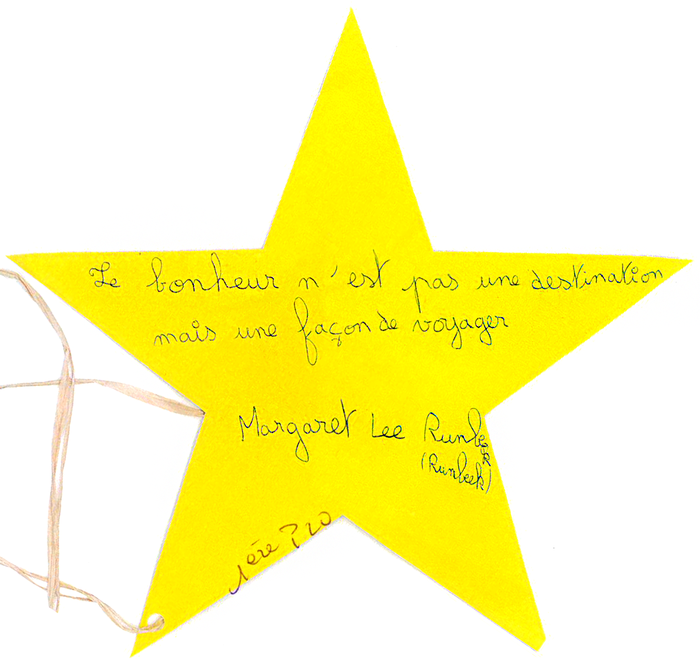 Le bonheur n'est pas une destination
mais une façon de voyager
Margaret Lee Runbeck
(Runbeck)
1ère Pro